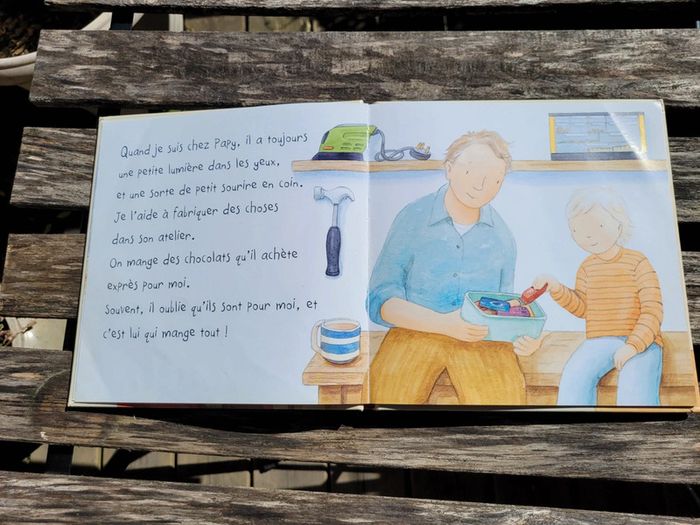 Quand je suis chez Papy, il a toujours
une petite lumière dans les yeux,
et une sorte de petit sourire en coin.
Je l'aide à fabriquer des choses
dans son atelier.
On mange des chocolats qu'il achète
exprès pour moi.
Souvent, il oublie qu'ils sont pour moi, et
c'est lui qui mange tout !